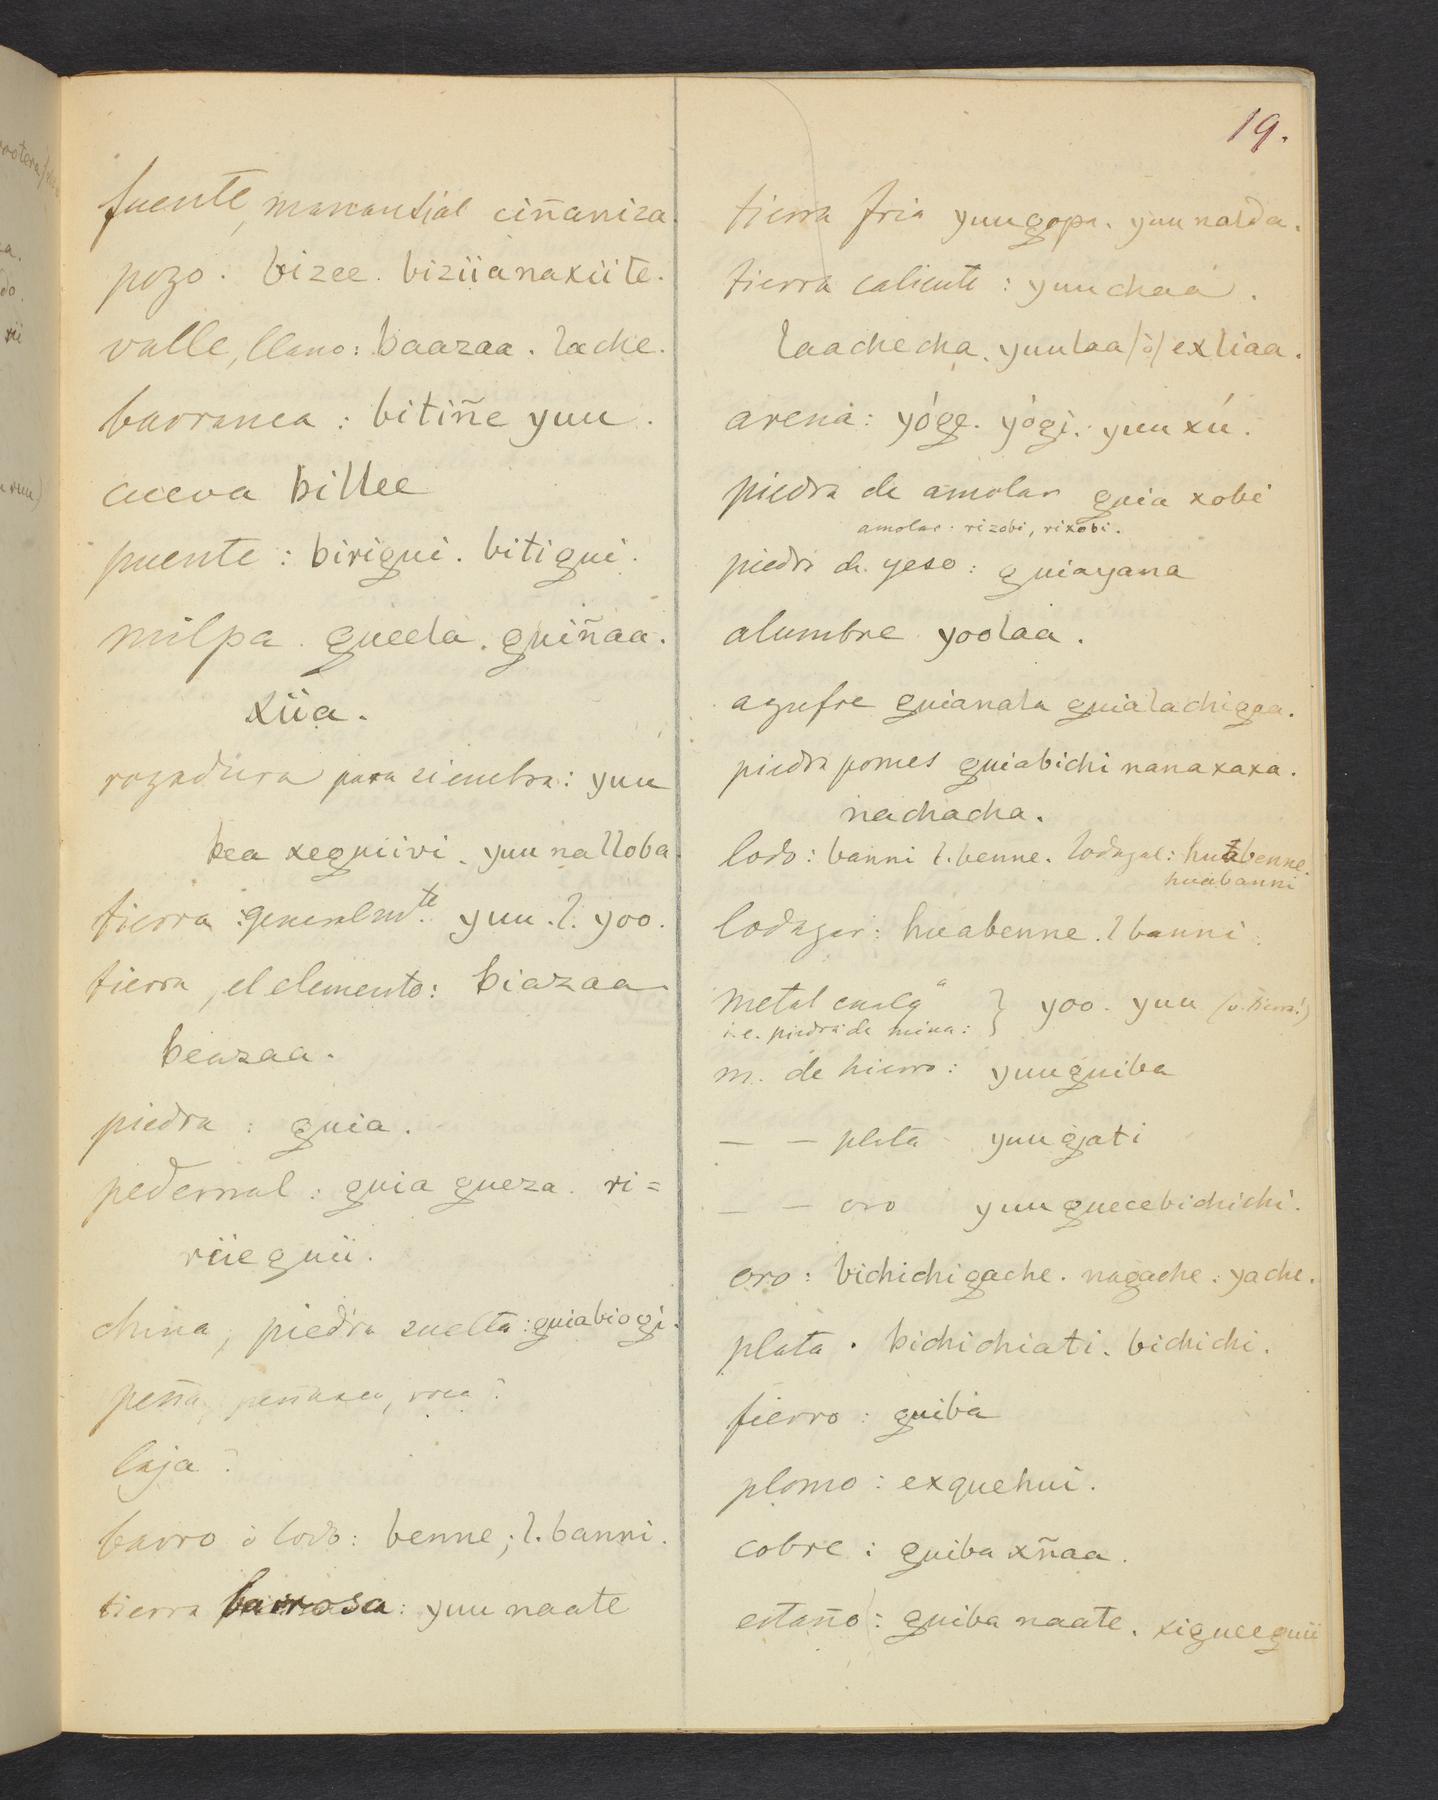 19.
fuente, manantial ciñaniza.
pozo. bizee. biziianaxiite.
valle, llano: baazaa. lache.
barranca: bitiñe yuu.
cueva billee
puente: birigui. bitigui.
milpa. gueela. guiñaa.
xiia.
rozadura para siembra: yuu
bea xeguiivi. yuu nalloba.
tierra: generalmte. yuu. l. yoo.
tierra, el elemento: biazaa
beazaa.
piedra: guia.
pedernal: guia gueza. ri=
riieguii.
china, piedra suelta: guiabiogi.
peña, peñasco, roca?
laja?
barro ò lodo: benne; l. banni.
tierra barrosa: yuu naate
tierra fria yuugopa. yuu nalda.
tierra caliente: yuuchaa.
laachecha. yuulaa/ò/exliaa.
arena: yóge. yógi. yuuxú.
piedra de amolar guia xobi
amolar: rizobi, rixobi.
piedra de yeso: guiayana
alumbre yoolaa.
azufre guianala guialachigaa.
piedra pomes guiabichi nanaxaxa.
nachacha.
lodo: banni l. benne. lodazal: huabenne.
huabanni
lodazar: huabenne. l banni.
Metal cualqa
i.e. piedra de mina: } yoo. yuu (v. tierra!)
m. de hierro: yuuguiba
— — plata yuugati
— — oro yuuguecebichichi.
oro: bichichigache. nagache: yache.
plata. bichichiati. bichichi.
fierro: guiba
plomo: exquehui.
cobre: guiba xñaa.
estaño: guiba naate. xigueeguii